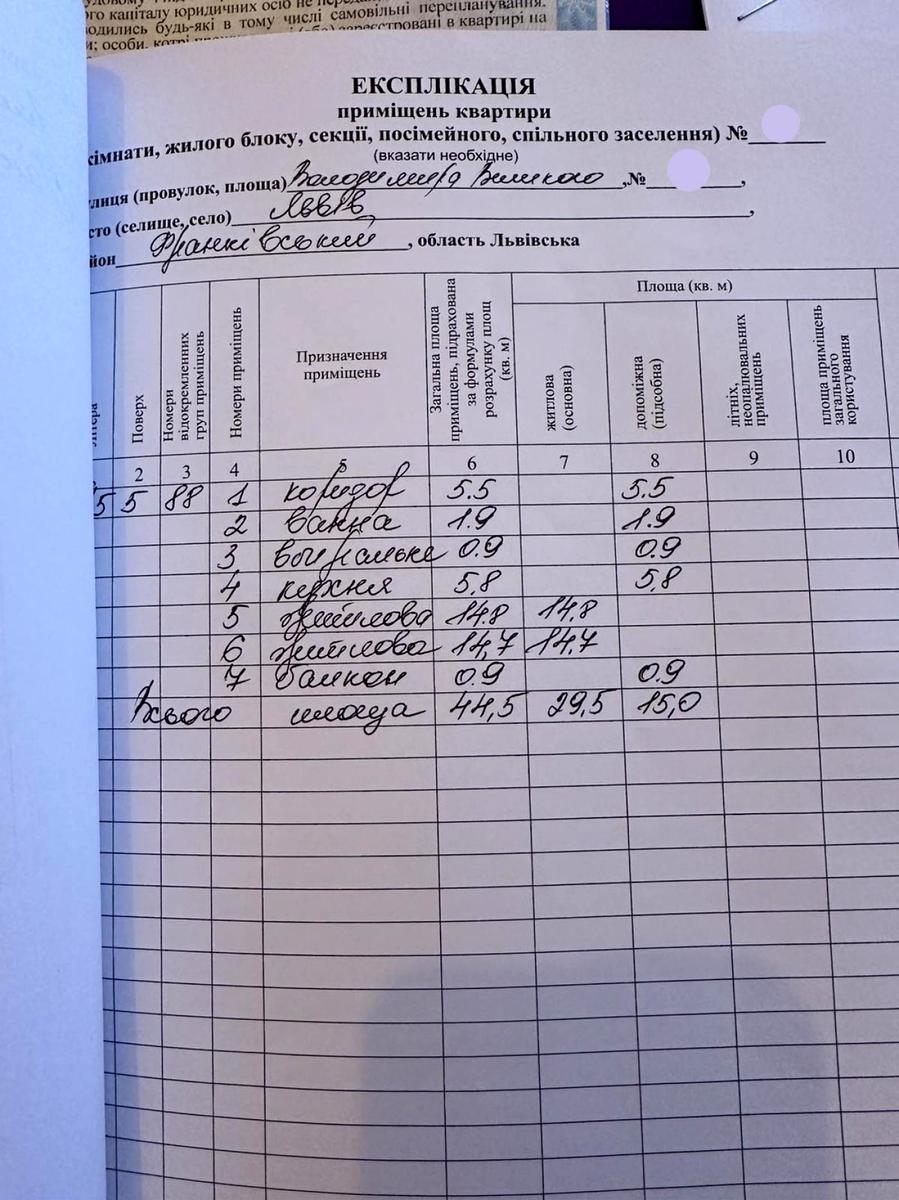 го капіталу юридичних осіб не
водились будь-які в тому числі самовільні перепланування.
и; особи, котрі зареєстровані в квартирі на
ЕКСПЛІКАЦІЯ
приміщень квартири
кімнати, жилого блоку, секції, посімейного, спільного заселення) №
(вказати необхідне)
лиця (провулок, площа) Володимира Великого ,№ ,
сто (селище, село) Львів ,
йон Франківський , область Львівська
Поверх Номери відокремленних груп приміщень Номери приміщень Призначення приміщень Загальна площа приміщень, підрахована за формулами розрахунку площ (кв. м) Площа (кв. м)
житлова (основна) допоміжна (підсобна) літніх, неопалювальних приміщень площа приміщень загального користування
2 3 4 5 6 7 8 9 10
5 5 88 1 коридор 5.5 5.5
2 ванна 1.9 1.9
3 0.9 0.9
4 кухня 5,8 5,8
5 житлова 14.8 14,8
6 житлова 14,7 14,7
7 балкон 0.9 0.9
Всього площа 44,5 29,5 15,0